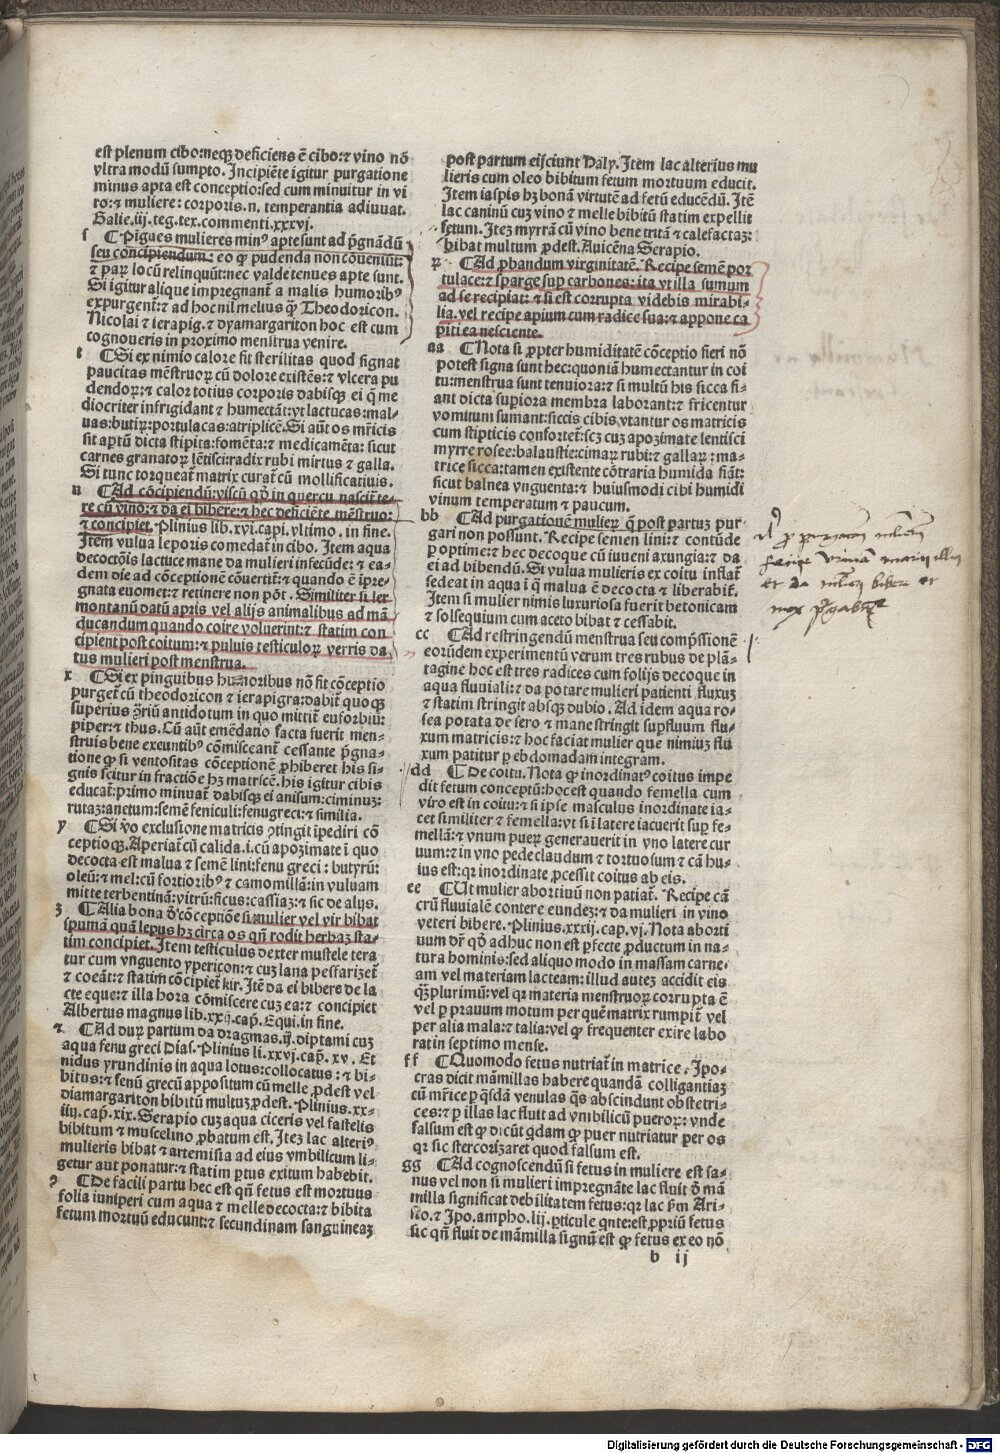 est plenum cibo:neqꝫ deficiens ē cibo:⁊ vino nō
vltra modū sumpto. Incipiēte igitur purgatione
minus apta est conceptio:sed cum minuitur in vi
ro:⁊ muliere: corporis.n. temperantia adiuuat.
Galie.iij.teg.tex.commenti.xxxvj.
s ¶Pigues mulieres minꝰ apte sunt ad p̄gnādū
seu concipiendum: eo ꝙ pudenda non cōueniūt:
⁊ par locū relinquūt:nec valde tenues apte sunt.
Si igitur alique impregnant̄ a malis humoribꝰ
expurgent̄:⁊ ad hoc nil melius qꝫ Theodoricon.
Nicolai ⁊ ierapig.⁊ dyamargariton hoc est cum
cognoueris in proximo menstrua venire.
t ¶Si ex nimio calore fit sterilitas quod signat
paucitas mēstruoꝝ cū dolore existēs:⁊ vlcera pu
dendoꝝ:⁊ calor totius corporis dabisqꝫ ei q̄ me
diocriter infrigidant ⁊ humectāt:vt lactucas:mal-
uas:butiꝝ:portulacas:atriplicē. Si aūt os mr̄icis
sit aptū dicta stipita:fomēta:⁊ medicamēta: sicut
carnes granatoꝝ lētisci:radix rubi mirtus ⁊ galla.
Si tunc torqueat̄ matrix curat̄ cū mollificatiuis.
u ¶Ad cōcipiendū:viscū qd̓ in quercu nascit̄ te-
re cū vino:⁊ da ei bibere:⁊ hec deficiēte mēstruo:
⁊ concipiet. Plinius lib.xvi.capi.vltimo. in fine.
Item vulua leporis comedat̄ in cibo. Item aqua
decoctōis lactuce mane da mulieri infecūde:⁊ ea-
dem die ad cōceptionē cōuertit̄:⁊ quando ē ipre-
gnata euomet:⁊ retinere non pōt. Similiter si ler
montanū datū apris vel alijs animalibus ad mā
ducandum quando coire voluerint:⁊ statim con
cipient post coitum:⁊ puluis testiculoꝝ verris da
tus mulieri post menstrua.
x ¶Si ex pinguibus humoribus nō fit cōceptio
purget̄ cū theodoricon ⁊ ierapigra:dabit̄ quoqꝫ
superius ꝯriū antidotum in quo mittit̄ euforbiū:
piper:⁊ thus. Cū aūt emēdatio facta fuerit men-
struis bene exeuntibꝰ cōmisceant̄ cessante p̄gna-
tione ꝙ si ventositas cōceptionē ꝓhiberet his si-
gnis scitur in fractiōe hꝫ matricē. his igitur cibis
educat̄:primo minuat̄ dabisqꝫ ei anisum:ciminuꝫ:
rutaꝫ:anetum:semē feniculi:fenugreci:⁊ similia.
y ¶Si v̓o exclusione matricis ꝯtingit īpediri cō
ceptioqꝫ. Aperiat̄ cū calida.i.cū apoꝫimate ī quo
decocta est malua ⁊ semē lini:fenu greci: butyrū:
oleū:⁊ mel:cū fortioribꝰ ⁊ camomillā:in vuluam
mitte terbentinā:vitrū:ficus:cassiaꝫ:⁊ sic de alijs.
ꝫ ¶Alia bona d̓ cōceptiōe si mulier vel vir bibat
spumā quā lepus hꝫ circa os qn̄ rodit herbaꝫ sta-
tim concipiet. Item testiculus dexter mustele tera
tur cum vnguento ypericon:⁊ cuꝫ lana pessarizet̄
⁊ coeāt:⁊ statim cōcipiet kir. Itē da ei bibere de la
cte eque:⁊ illa hora cōmiscere cuꝫ ea:⁊ concipiet
Albertus magnus lib.xxij.cap̄. Equi.in fine.
⁊ ¶Ad duꝝ partum da dragmas.ij.diptami cuꝫ
aqua fenu greci Dias. Plinius li.xxvj.cap̄.xv. Et
nidus yrundinis in aqua lotus:collocatus:⁊ bi-
bitus:⁊ fenū grecū appositum cū melle ꝓdest vel
diamargariton bibitū multuꝫ ꝓdest. Plinius.xx-
iiij.cap̄.xix. Serapio cuꝫ aqua ciceris vel faselis
bibitum ⁊ muscelino ꝓbatum est. Iteꝫ lac alteriꝰ
mulieris bibat ⁊ artemisia ad eius vmbilicum li-
getur aut ponatur:⁊ statim ptus exitum habebit.
ꝯ ¶De facili partu hec est qn̄ fetus est mortuus
folia iuniperi cum aqua ⁊ melle decocta:⁊ bibita
fetum mortuū educunt:⁊ secundinam sanguineaꝫ
post partum eijciunt Haly. Item lac alterius mu
lieris cum oleo bibitum fetum mortuum educit.
Item iaspis hꝫ bonā virtutē ad fetū educēdū. Itē
lac caninū cuꝫ vino ⁊ melle bibitū statim expellit
fetum. Iteꝫ myrrā cū vino bene tritā ⁊ calefactaꝫ:
bibat multum ꝓdest. Auicēna Serapio.
ꝝ ¶Ad ꝓbandum virginitatē. Recipe semē por
tulace:⁊ sparge sup carbones: ita vt illa fumum
ad se recipiat:⁊ si est corrupta videbis mirabi-
lia. vel recipe apium cum radice sua:⁊ appone ca
piti ea nesciente.
aa ¶Nota si ꝓpter humiditatē cōceptio fieri nō
potest signa sunt hec:quoniā humectantur in coi
tu:menstrua sunt tenuiora:⁊ si multū his sicca fi-
ant dicta supiora membra laborant:⁊ fricentur
vomitum sumant:siccis cibis vtantur os matricis
cum stipticis confortet̄:scꝫ cuꝫ apoꝫimate lentisci
myrre rosee:balaustie:cimaꝝ rubi:⁊ gallaꝝ: ma-
trice sicca:tamen existente cōtraria humida fiāt:
sicut balnea vnguenta:⁊ huiusmodi cibi humidi
vinum temperatum ⁊ paucum.
bb ¶Ad purgationē mulieꝝ q̄ post partuꝫ pur-
gari non possunt. Recipe semen lini:⁊ contūde
p optime:⁊ hec decoque cū iuueni axungia:⁊ da
ei ad bibendū. Si vulua mulieris ex coitu inflat̄
sedeat in aqua ī q̄ malua ē decocta ⁊ liberabit̄.
Item si mulier nimis luxuriosa fuerit betonicam
⁊ solsequium cum aceto bibat ⁊ cessabit.
cc ¶Ad restringendū menstrua seu comp̄ssionē
eorūdem experimentū verum tres rubus de plā-
tagine hoc est tres radices cum folijs decoque in
aqua fluuiali:⁊ da potare mulieri patienti fluxuꝫ
⁊ statim stringit absqꝫ dubio. Ad idem aqua ro-
sea potata de sero ⁊ mane stringit supfluum flu-
xum matricis:⁊ hoc faciat mulier que nimiuꝫ flu
xum patitur p ebdomadam integram.
dd ¶De coitu. Nota ꝙ inordinatꝰ coitus impe
dit fetum conceptū:hoc est quando femella cum
viro est in coitu:⁊ si ipse masculus inordinate ia-
cet similiter ⁊ femella:vt si ī latere iacuerit sup fe-
mellā:⁊ vnum pueꝝ generauerit in vno latere cur
uum:⁊ in vno pede claudum ⁊ tortuosum ⁊ cā hu-
ius est:qꝛ inordinate ꝓcessit coitus ab eis.
ee ¶Ut mulier abortiuū non patiat̄. Recipe cā
crū fluuialē contere eundeꝫ:⁊ da mulieri in vino
veteri bibere. Plinius.xxxij.cap.vj. Nota aborti
uum dr̄ qd̓ adhuc non est pfecte ꝓductum in na-
tura hominis:sed aliquo modo in massam carne-
am vel materiam lacteam: illud auteꝫ accidit eis
qꝫplurimū:vel qꝛ materia menstruoꝝ corrupta ē
vel p prauum motum per quē matrix rumpit̄ vel
per alia mala:⁊ talia:vel ꝙ frequenter exire labo
rat in septimo mense.
ff ¶Quomodo fetus nutriat̄ in matrice. Ipo-
cras dicit māmillas habere quandā colligantiaꝫ
cū mr̄ice p qͣsdā venulas qͣs abscindunt obstetri-
ces:⁊ p illas lac fluit ad vmbilicū pueroꝝ: vnde
falsum est ꝙ dicūt qͥdam ꝙ puer nutriatur per os
qꝛ sic stercorizaret quod falsum est.
gg ¶Ad cognoscendū si fetus in muliere est sa-
nus vel non si mulieri impregnāte lac fluit d̓ mā
milla significat debilitatem fetus:qꝛ lac p̄m Ari-
sto.⁊ Ipo.ampho.lij.pticule qnte:est ꝓpriū fetus
sic qn̄ fluit de māmilla signū est ꝙ fetus ex eo nō
b ij
bibere et
Digitalisierung gefördert durch die Deutsche Forschungsgemeinschaft - DFG